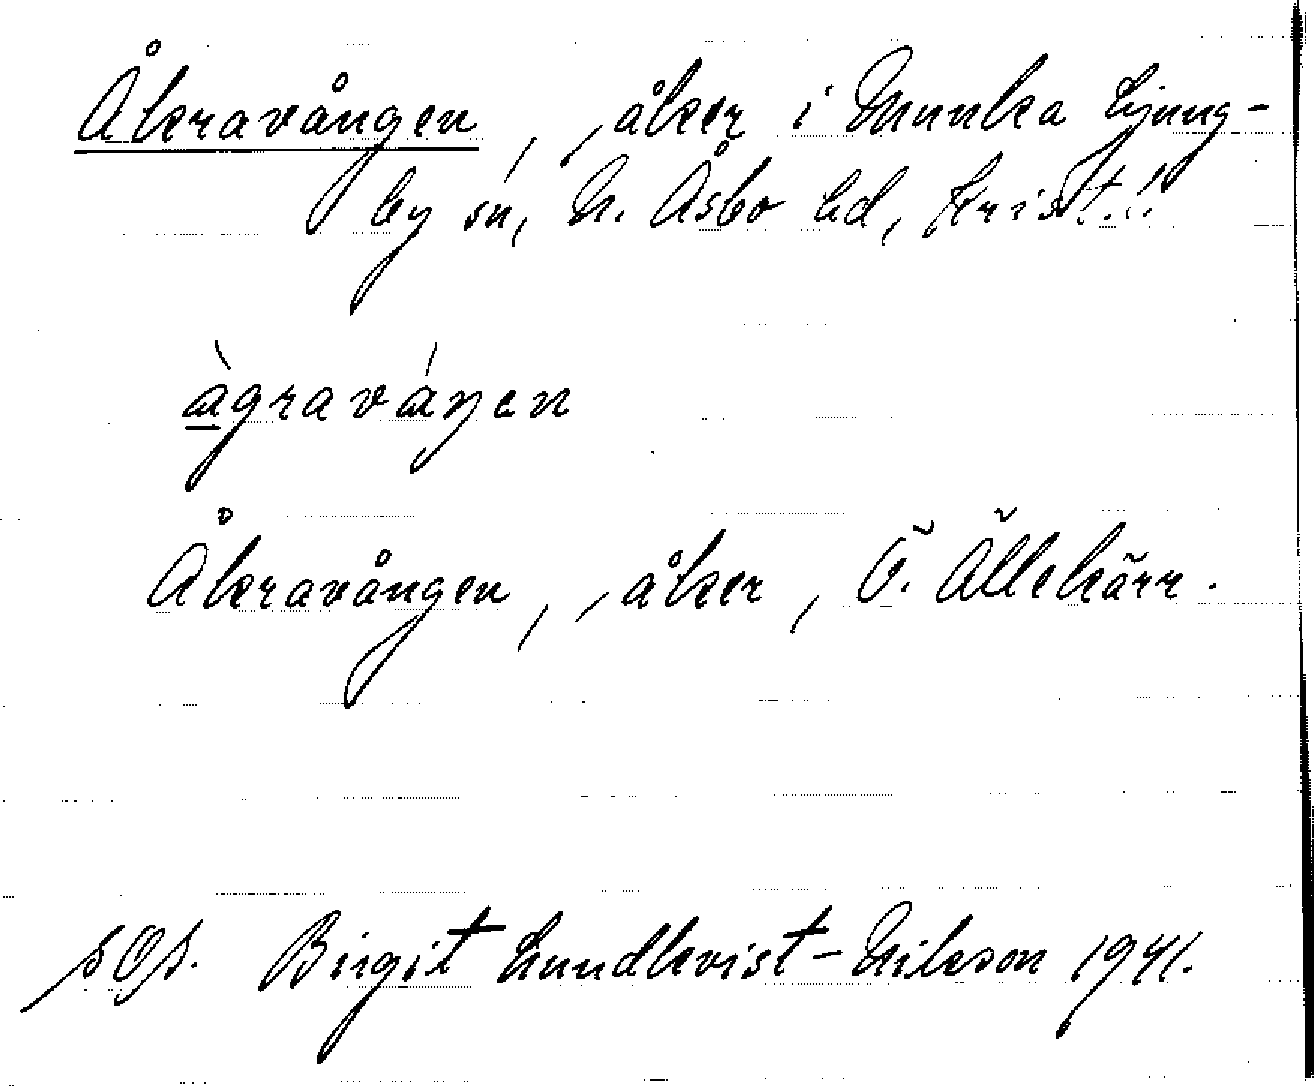 Åkravången, åker i Munka Ljung-
by sn, N. Åsbo hd, Krist.!!
àgraváŋen
Åkravången, åker, Ö. Ällekärr.
Birgit Lundkvist-Nilsson 1941.